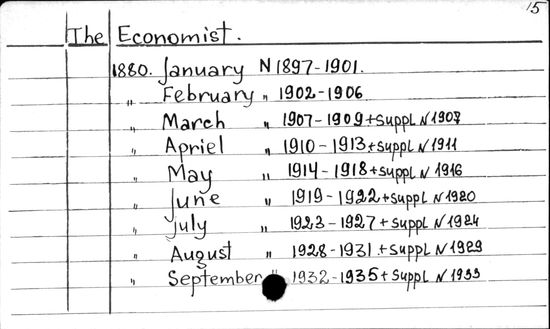 15
The Economist.
1880. January N 1897-1901.
„ February „ 1902-1906
„ March „ 1907-1909+Suppl N 1907
„ Apriel „ 1910-1913+Suppl N 1911
„ May „ 1914-1918+Suppl N 1916
„ June „ 1919-1922+Suppl N 1920
„ July „ 1923-1927+Suppl N 1924
„ August „ 1928-1931.+Suppl N 1929
„ September „ 1932-1935+Suppl N 1933